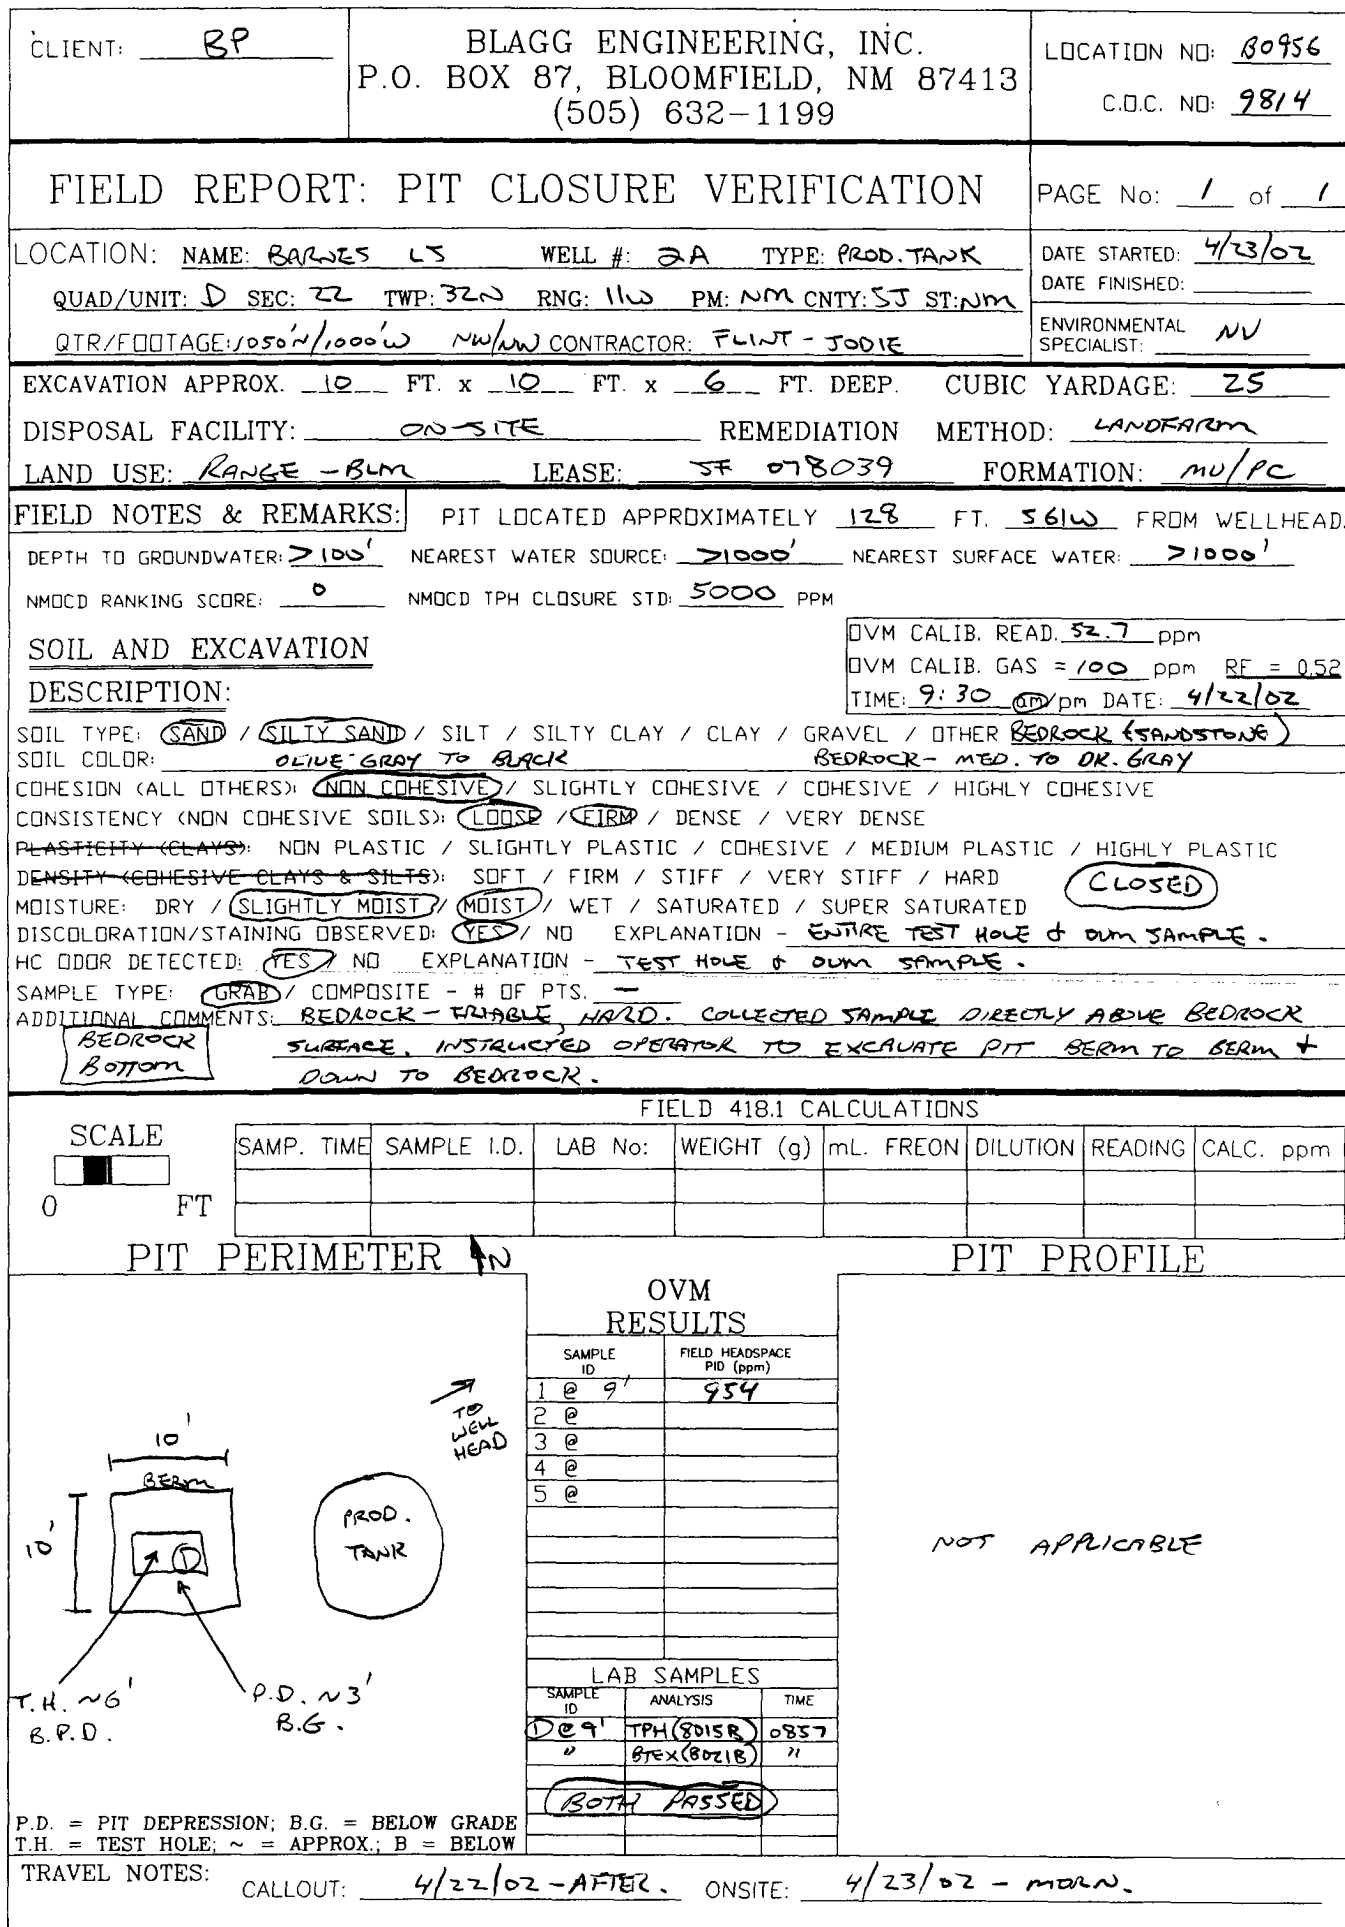 CLIENT: BP
BLAGG ENGINEERING, INC.
P.O. BOX 87, BLOOMFIELD, NM 87413
(505) 632-1199
LOCATION NO: B0956
C.O.C. NO: 9814
FIELD REPORT: PIT CLOSURE VERIFICATION
PAGE No: 1 of 1
LOCATION: NAME: BARNES LS WELL #: 2A TYPE: PROD. TANK
QUAD/UNIT: D SEC: 22 TWP: 32N RNG: 11W PM: NM CNTY: SJ ST: NM
QTR/FOOTAGE: 1050'N/1000'W NW/NW CONTRACTOR: FLINT - JODIE
DATE STARTED: 4/23/02
DATE FINISHED:
ENVIRONMENTAL SPECIALIST: NV
EXCAVATION APPROX. 10 FT. x 10 FT. x 6 FT. DEEP. CUBIC YARDAGE: 25
DISPOSAL FACILITY: ON-SITE REMEDIATION METHOD: LANDFARM
LAND USE: RANGE - BLM LEASE: SF 078039 FORMATION: MV/PC
FIELD NOTES & REMARKS: PIT LOCATED APPROXIMATELY 128 FT. S61W FROM WELLHEAD.
DEPTH TO GROUNDWATER: >100' NEAREST WATER SOURCE: >1000' NEAREST SURFACE WATER: >1000'
NMOCD RANKING SCORE: 0 NMOCD TPH CLOSURE STD: 5000 PPM
SOIL AND EXCAVATION
DESCRIPTION:
OVM CALIB. READ. 52.7 ppm
OVM CALIB. GAS = 100 ppm RF = 0.52
TIME: 9:30 am/pm DATE: 4/22/02
SOIL TYPE: SAND / SILTY SAND / SILT / SILTY CLAY / CLAY / GRAVEL / OTHER BEDROCK (SANDSTONE)
SOIL COLOR: OLIVE-GRAY TO BLACK BEDROCK - MED. TO DK. GRAY
COHESION (ALL OTHERS): NON COHESIVE / SLIGHTLY COHESIVE / COHESIVE / HIGHLY COHESIVE
CONSISTENCY (NON COHESIVE SOILS): LOOSE / FIRM / DENSE / VERY DENSE
PLASTICITY (CLAYS): NON PLASTIC / SLIGHTLY PLASTIC / COHESIVE / MEDIUM PLASTIC / HIGHLY PLASTIC
DENSITY (COHESIVE CLAYS & SILTS): SOFT / FIRM / STIFF / VERY STIFF / HARD
CLOSED
MOISTURE: DRY / SLIGHTLY MOIST / MOIST / WET / SATURATED / SUPER SATURATED
DISCOLORATION/STAINING OBSERVED: YES / NO EXPLANATION - ENTIRE TEST HOLE & OVM SAMPLE.
HC ODOR DETECTED: YES / NO EXPLANATION - TEST HOLE & OVM SAMPLE.
SAMPLE TYPE: GRAB / COMPOSITE - # OF PTS. —
ADDITIONAL COMMENTS: BEDROCK - FRIABLE, HARD. COLLECTED SAMPLE DIRECTLY ABOVE BEDROCK
SURFACE. INSTRUCTED OPERATOR TO EXCAVATE PIT BERM TO BERM &
DOWN TO BEDROCK.
BEDROCK
BOTTOM
FIELD 418.1 CALCULATIONS
SCALE
0 FT
SAMP. TIME SAMPLE I.D. LAB No: WEIGHT (g) mL. FREON DILUTION READING CALC. ppm
PIT PERIMETER N
PIT PROFILE
OVM
RESULTS
SAMPLE ID FIELD HEADSPACE PID (ppm)
1 @ 9' 954
2 @
3 @
4 @
5 @
TO
WELL
HEAD
10'
BERM
10'
1
PROD.
TANK
T.H. ~6'
B.P.D.
P.D. ~3'
B.G.
NOT APPLICABLE
LAB SAMPLES
SAMPLE ID ANALYSIS TIME
1@9' TPH (8015B) 0857
" BTEX (8021B) "
BOTH PASSED
P.D. = PIT DEPRESSION; B.G. = BELOW GRADE
T.H. = TEST HOLE; ~ = APPROX.; B = BELOW
TRAVEL NOTES: CALLOUT: 4/22/02 - AFTER. ONSITE: 4/23/02 - MORN.